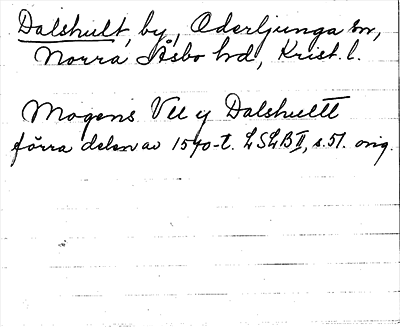 Dalshult, by, Oderljunga sn,
Norra Åsbo hd, Krist. l.
Mogens Vee y Dalshultt
förra delen av 1540-t. LSLB II, s. 51. orig.